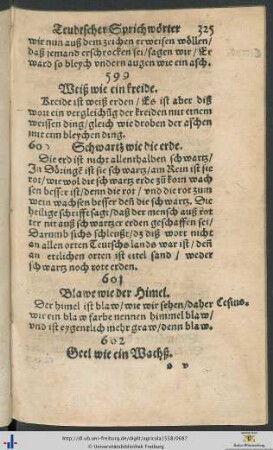 Teutscher Sprichwörter 325
wir nun auß dem zeichen erweisen wöllen/
daß jemand erschrocken sei/ sagen wir/ Er
ward so bleych vndern augen wie ein asch.
599
Weiß wie ein kreide.
Kreide ist weiß erden/ Es ist aber diß
wort ein vergleichũg der kreiden mit einem
weissen ding/ gleich wie droben der aschen
mit eim bleychen ding.
600 Schwartz wie die erde.
Die erd ist nicht allenthalben schwartz/
In Döringẽ ist sie schwartz/ am Rein ist sie
rot/ wie wol die schwartz erde zů korn wach
sen besser ist/ denn die rot/ vnd die rot zum
wein wachsen besser deñ die schwartz. Die
heilige schrifft sagt/ daß der mensch auß rot
ter nit auß schwartzer erden geschaffen sei/
Darumb sichs schleoßt/ dz diß wort nicht
an allen orten Teutschs lands war ist/ deñ
an etlichen orten ist eitel sand/ weder
schwartz noch rote erden.
601
Blawe wie der Himel.
Der himel ist blaw/ wie wir sehen/ daher Cesius.
wir ein blaw farbe nennen himmel blaw/
vnd ist eygentlich mehr graw/ denn blaw.
602
Geel wie ein Wachß.
v
http://dl.ub.uni-freiburg.de/diglit/agricola1558/0687
© Universitätsbibliothek Freiburg
Baden-Württemberg